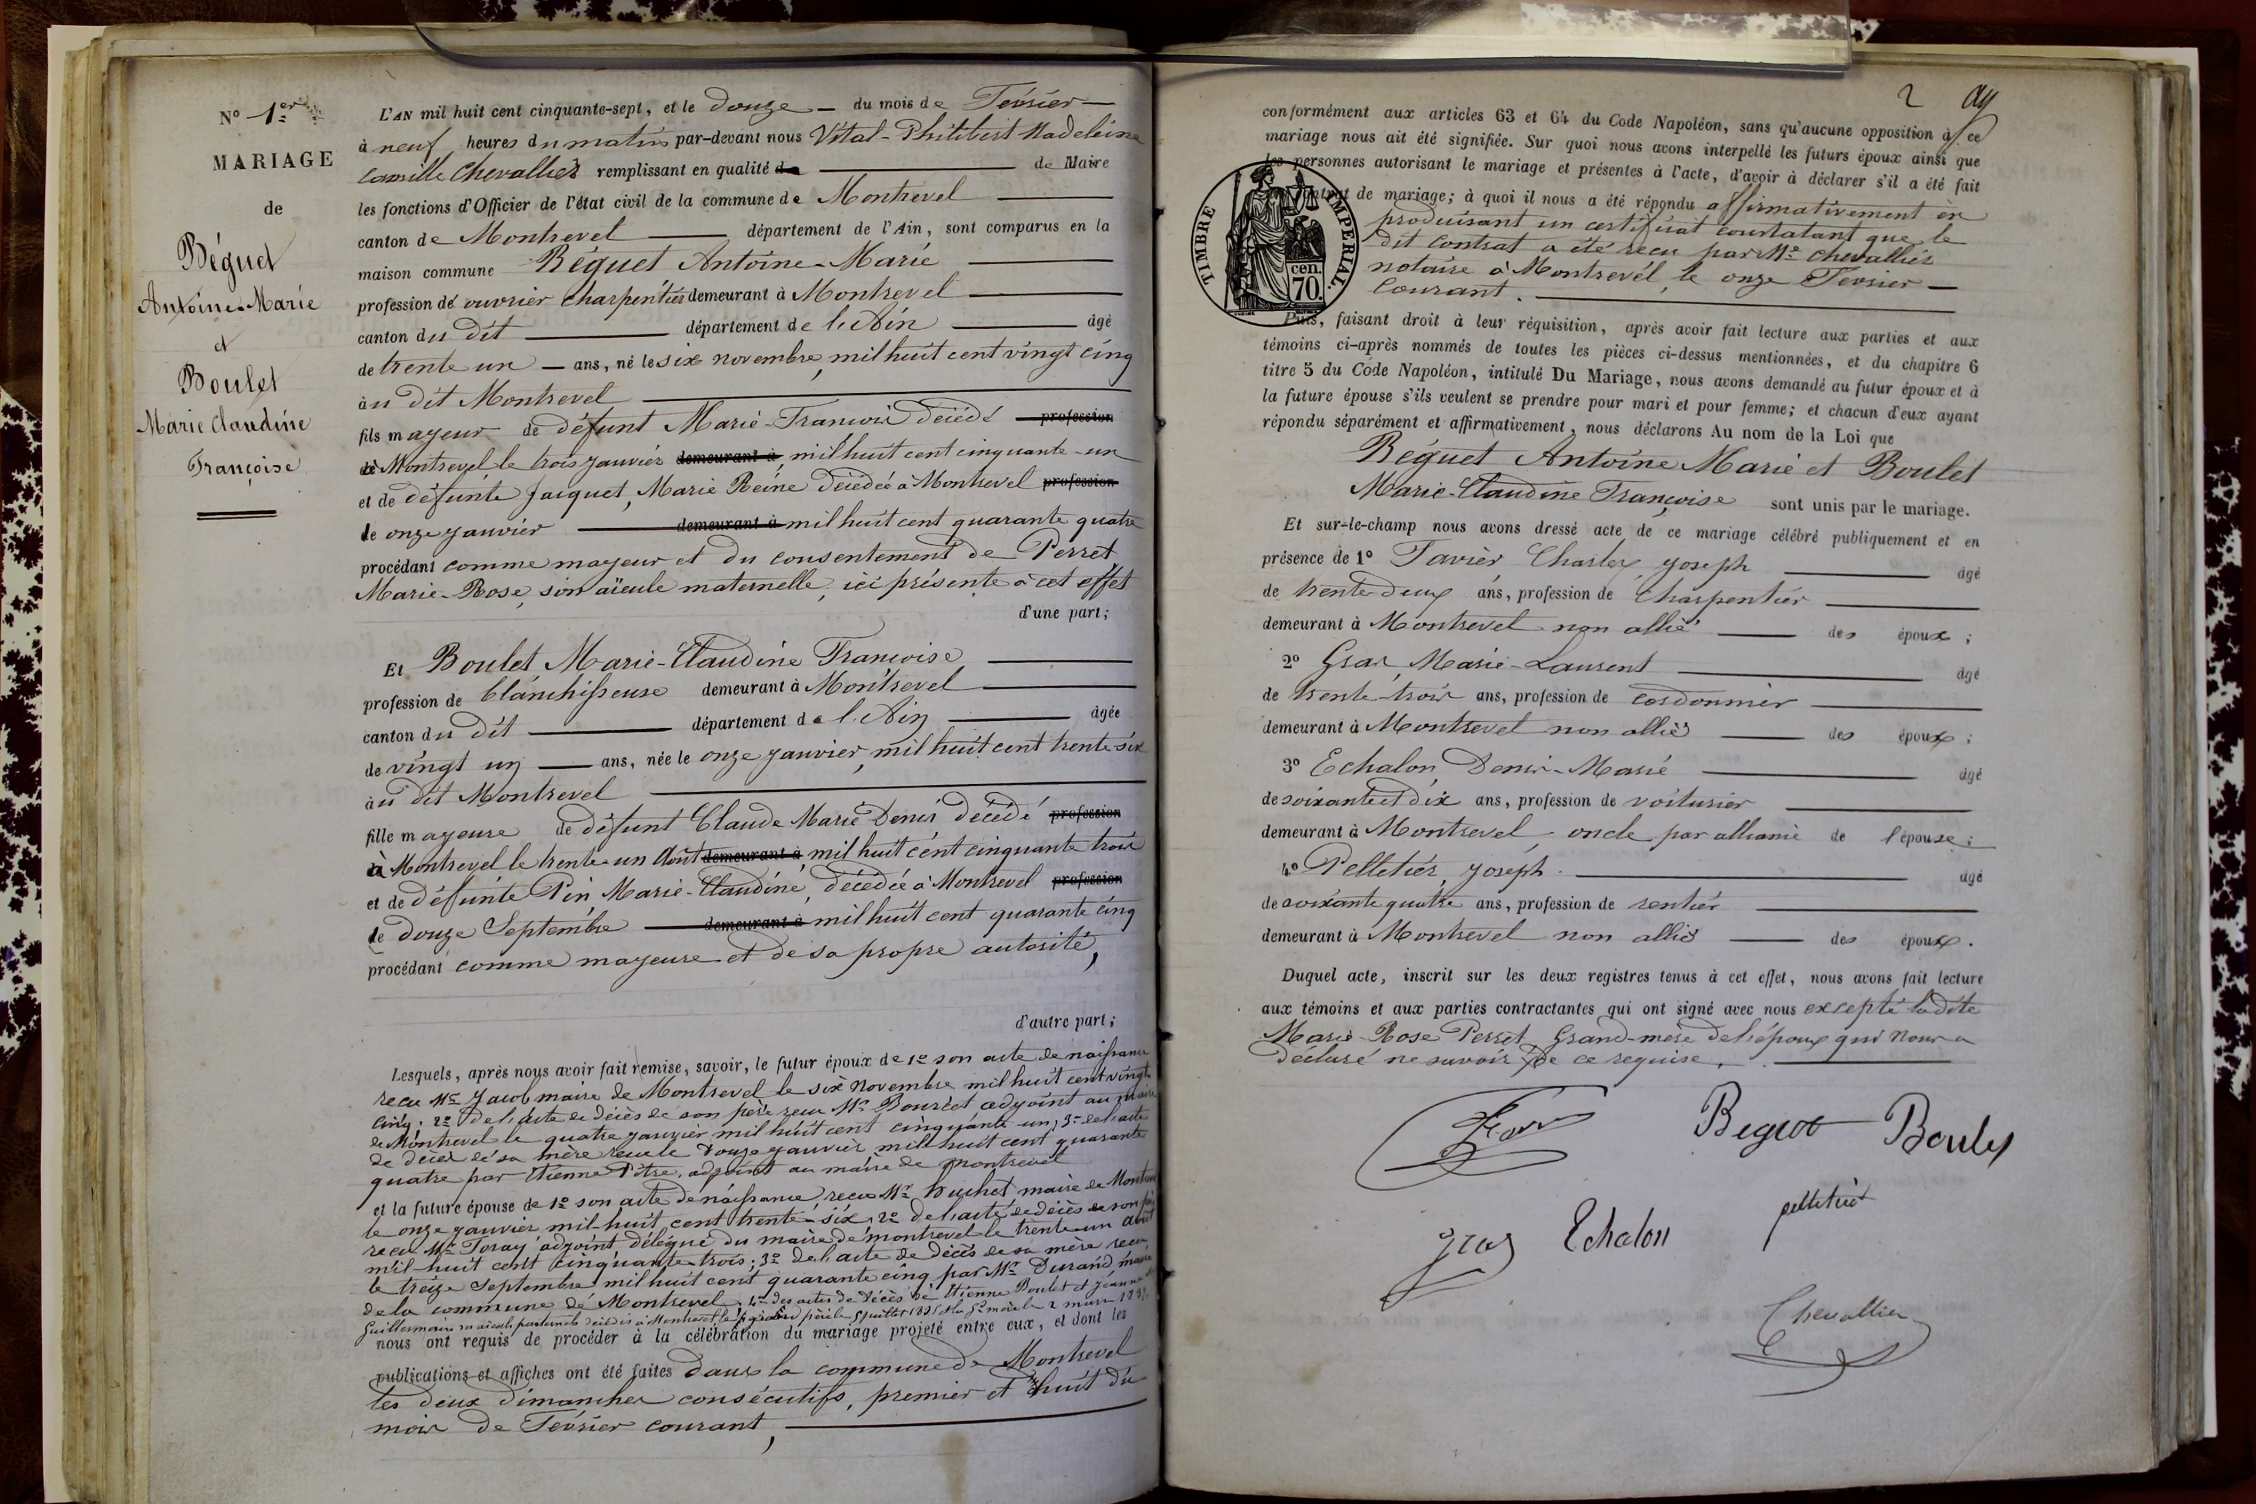 N° 1er
MARIAGE
de
Béguet
Antoine-Marie
et
Boulet
Marie Claudine
Françoise
L'AN mil huit cent cinquante-sept, et le douze du mois de Février
à neuf heures du matin par-devant nous Vital-Philibert Madeleine
Camille Chevallier remplissant en qualité de Maire
les fonctions d'Officier de l'état civil de la commune de Montrevel
canton de Montrevel département de l'Ain, sont comparus en la
maison commune Béguet Antoine-Marie
profession de ouvrier charpentier demeurant à Montrevel
canton du dit département de l'Ain âgé
de trente un ans, né le six novembre, mil huit cent vingt cinq
au dit Montrevel
fils mayeur de défunt Marie-François décédé profession
à Montrevel le trois janvier demeurant à mil huit cent cinquante-un
et de défunte Jacquet, Marie Reine décédée à Montrevel profession
le onze janvier demeurant à mil huit cent quarante quatre
procédant comme mayeur et du consentement de Perret
Marie-Rose, son aïeule maternelle, ici présente à cet effet
d'une part;
Et Boulet Marie-Claudine Françoise
profession de blanchisseuse demeurant à Montrevel
canton du dit département de l'Ain âgée
de vingt un ans, née le onze janvier, mil huit cent trente six
au dit Montrevel
fille mayeure de défunt Claude Marie Denis décédé profession
à Montrevel le trente-un Août demeurant à mil huit cent cinquante trois
et de défunte Pin, Marie-Claudine, décédée à Montrevel profession
le douze Septembre demeurant à mil huit cent quarante cinq
procédant comme mayeure et de sa propre autorité,
d'autre part;
Lesquels, après nous avoir fait remise, savoir, le futur époux de 1° son acte de naissance
recu Mr Jacob maire de Montrevel le six novembre mil huit cent vingt
cinq; 2° de l'acte de décès de son père recu Mr Bouret adjoint au maire
de Montrevel le quatre janvier mil huit cent cinquante un; 3° de l'acte
de décès de sa mère recu le douze janvier mil huit cent quarante
quatre par Etienne Pitre, adjoint au maire de Montrevel
et la future épouse de 1° son acte de naissance recu Mr Huchet maire de Montrevel
le onze janvier mil-huit cent trente-six; 2° de l'acte de décès de son père
recu Mr Foray adjoint délégué du maire de montrevel le trente-un Août
mil-huit cent cinquante-trois; 3° de l'acte de décès de sa mère recu
le treize Septembre mil huit cent quarante cinq par Mr Durand maire
de la commune de Montrevel; 4° des actes de décès de Etienne Boulet et Jeanne
Guillermain ses aïeuls paternels décédés à Montrevel, le grand père le 5 juillet et la mère le 2 mars
nous ont requis de procéder à la célébration du mariage projeté entre eux, et dont les
publications et affiches ont été faites dans la commune de Montrevel
les deux dimanches consécutifs, premier et huit du
mois de Février courant,
2
conformément aux articles 63 et 64 du Code Napoléon, sans qu'aucune opposition à ce
mariage nous ait été signifiée. Sur quoi nous avons interpellé les futurs époux ainsi que
les personnes autorisant le mariage et présentes à l'acte, d'avoir à déclarer s'il a été fait
contrat de mariage; à quoi il nous a été répondu affirmativement en
produisant un certificat constatant que le
dit contrat a été recu par Me Chevallier
notaire à Montrevel, le onze Février
courant.
TIMBRE IMPERIAL.
cen.
70.
Puis, faisant droit à leur réquisition, après avoir fait lecture aux parties et aux
témoins ci-après nommés de toutes les pièces ci-dessus mentionnées, et du chapitre 6
titre 5 du Code Napoléon, intitulé Du Mariage, nous avons demandé au futur époux et à
la future épouse s'ils veulent se prendre pour mari et pour femme; et chacun d'eux ayant
répondu séparément et affirmativement, nous déclarons Au nom de la Loi que
Béguet Antoine Marie et Boulet
Marie-Claudine Françoise sont unis par le mariage.
Et sur-le-champ nous avons dressé acte de ce mariage célébré publiquement et en
présence de 1° Favier Charles, Joseph âgé
de trente-deux ans, profession de Charpentier
demeurant à Montrevel non allié des époux;
2° Gras Marie-Laurent âgé
de trente-trois ans, profession de cordonnier
demeurant à Montrevel non allié des époux;
3° Echalon Denis-Marie âgé
de soixante et dix ans, profession de voiturier
demeurant à Montrevel oncle par alliance de l'épouse;
4° Pelletier, Joseph. âgé
de soixante quatre ans, profession de rentier
demeurant à Montrevel non allié des époux.
Duquel acte, inscrit sur les deux registres tenus à cet effet, nous avons fait lecture
aux témoins et aux parties contractantes qui ont signé avec nous excepté la dite
Marie-Rose Perret Grand-mère de l'époux qui nous a
déclaré ne savoir de ce requise.
Beguet Boulet
Gras Echalon pelletier
Chevallier